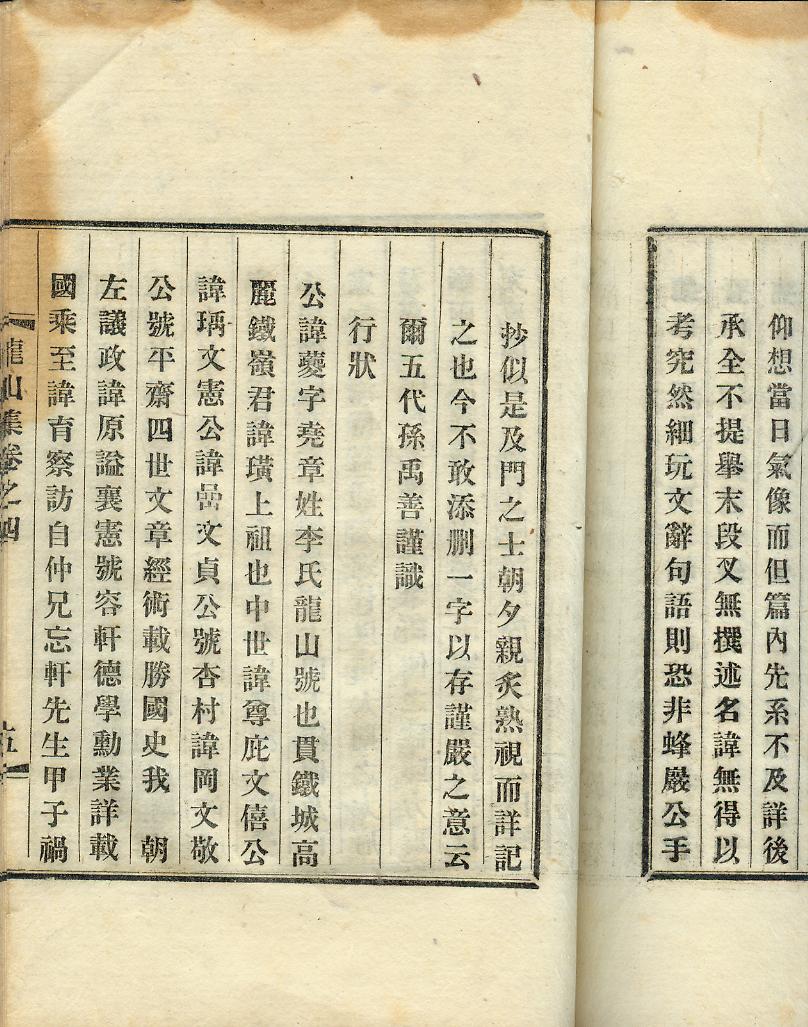 仰想當日氣像而但篇內先系不及詳後
承全不提舉末段又無撰述名諱無得以
考究然細玩文辭句語則恐非蜂巖公手
抄似是及門之士朝夕親炙熟視而詳記
之也今不敢添刪一字以存謹嚴之意云
爾五代孫禹善謹識
行狀
公諱夔字堯章姓李氏龍山號也貫鐵城高
麗鐵嶺君諱璜上祖也中世諱尊庇文僖公
諱瑀文憲公諱嵒文貞公號杏村諱岡文敬
公號平齋四世文章經術載勝國史我 朝
左議政諱原謚襄憲號容軒德學勳業詳載
國乘至諱育察訪自仲兄忘軒先生甲子禍
龍山集卷之四 五